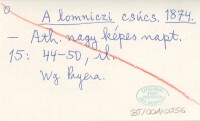 A lomniczi csúcs. 1874.
– Ath. nagy képes napt.
15: 44–50, ill.
Wg Payera.
BT/00A10256